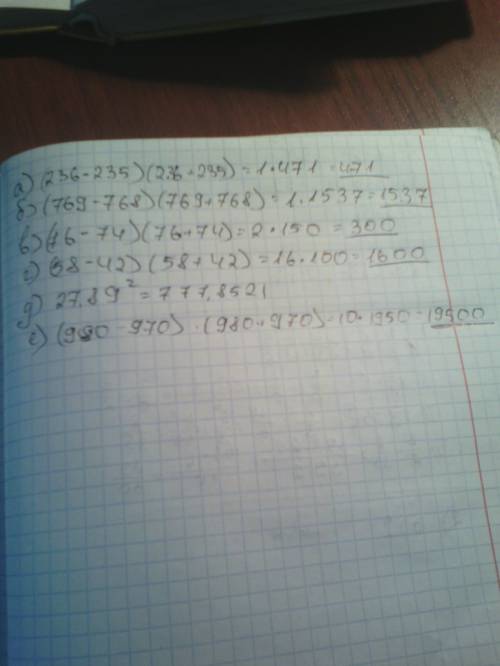 а) (236-235)(236+235)=1·471=471
б) (769-768)(769+768)=1·1537=1537
в) (76-74)(76+74)=2·150=300
г) (58-42)(58+42)=16·100=1600
д) 27,89²=777,8521
е) (980-970)·(980+970)=10·1950=19500